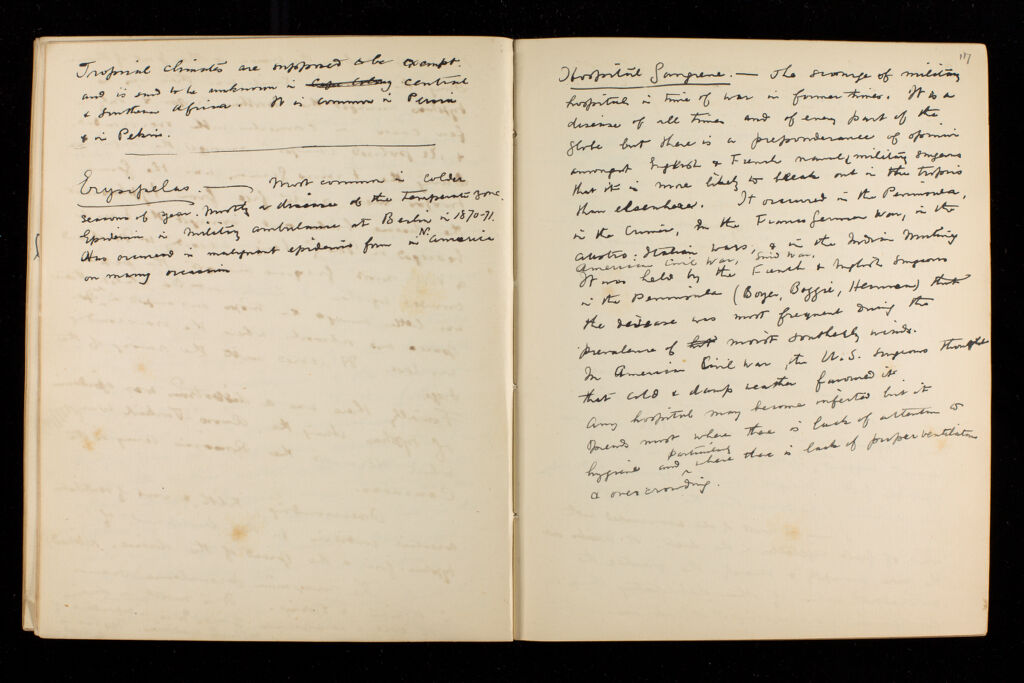 Tropical climates are supposed to be exempt.
and is said to be unknown in Cape Colony central
& Southern Africa. It is common in Persia
& in Pekin.
Erysipelas. — Most common in colder
seasons of year. Mostly a disease of the Temperate zone.
Epidemic in military ambulance at Berlin in 1870-71.
Has occurred in malignant epidemic form in N. America
on many occasions
117
Hospital Gangrene. — The scourge of military
hospitals in time of war in former times. It is a
disease of all times and of every part of the
globe but there is a preponderance of opinion
amongst English & French naval & military surgeons
that it is more likely to break out in the tropics
than elsewhere. It occurred in the Peninsula,
in the Crimea, In the Franco German War, in the
Austro: Italian wars, & in the Indian Mutiny
American Civil War,
It was held by the French & English surgeons
in the Peninsula (Boyer, Boggie, Hennen) that
the disease was most frequent during the
prevalence of hot moist southerly winds.
In American Civil War, the U.S. Surgeons thought
that cold & damp weather favoured it
Any hospital may become infected but it
spreads most where there is lack of attention to
hygiene and particularly where there is lack of proper ventilation
& overcrowding.